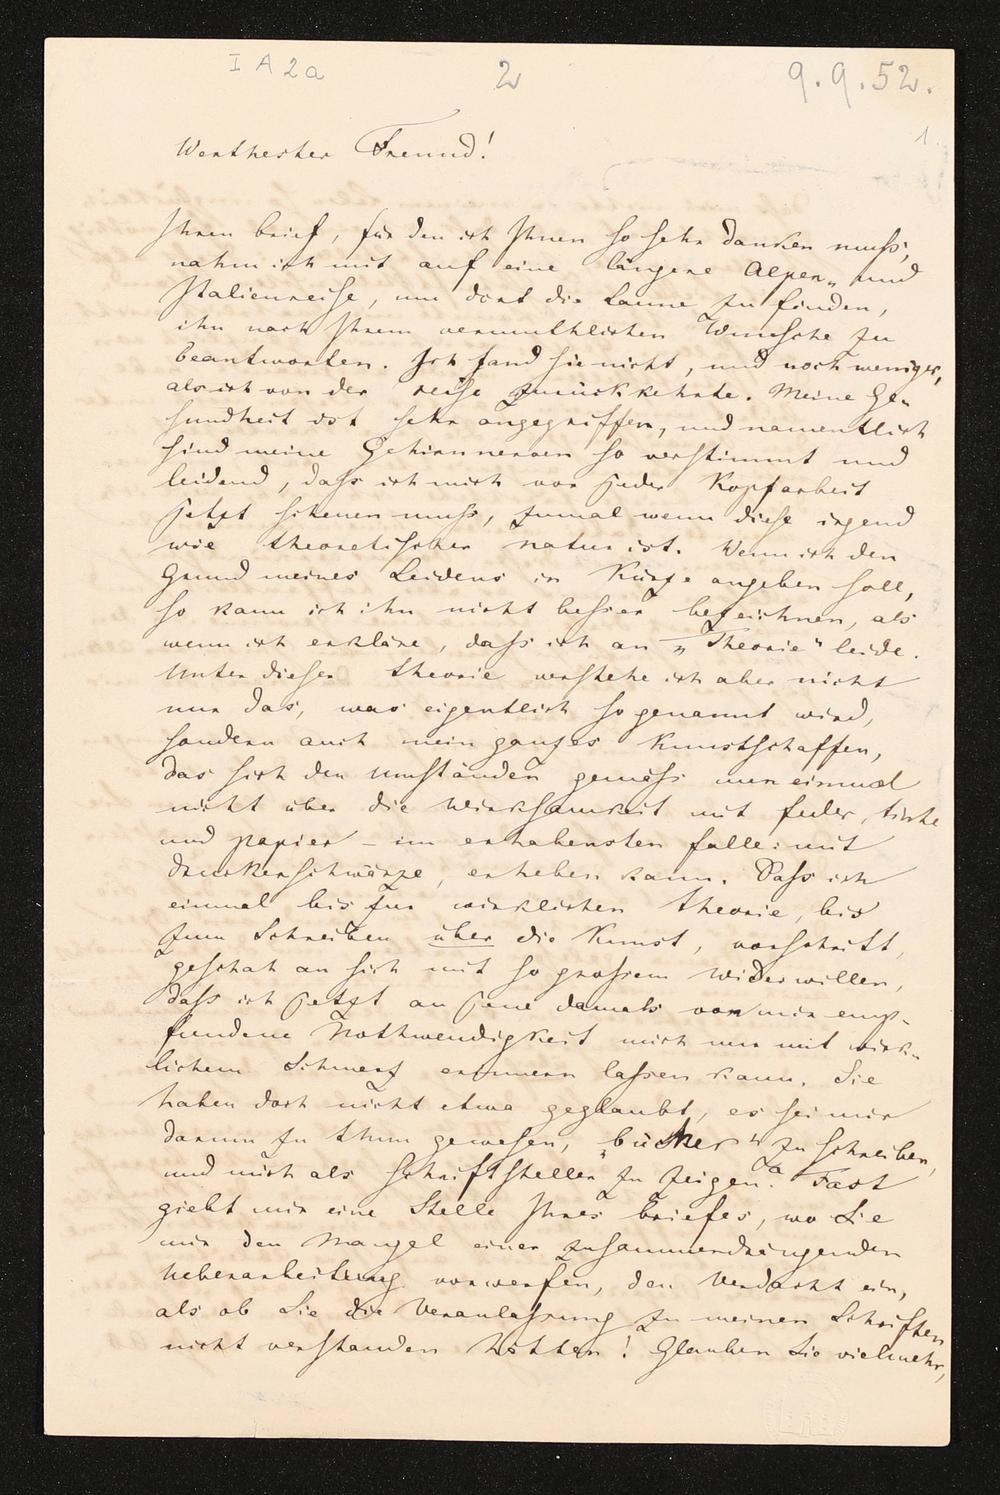 I A 2a
2
9.9.52.
1.
Werthester Freund!
Ihren brief, für den ich Ihnen so sehr danken muss,
nahm ich mit auf eine längere Alpen- und
Italienreise, um dort die Laune zu finden,
ihn nach Ihrem vermuthlichen Wunsche zu
beantworten. Ich fand sie nicht, und noch weniger,
als ich von der reise zurückkehrte. Meine Ge-
sundheit ist sehr angegriffen, und namentlich
sind meine Gehirnnerven so verstimmt und
leidend, dass ich mich vor jeder Kopfarbeit
jetzt scheuen muss, zumal wenn diese irgend
wie theoretischer natur ist. Wenn ich den
Grund meines Leidens in Kürze angeben soll,
so kann ich ihn nicht besser bezeichnen, als
wenn ich erkläre, dass ich an „Theorie“ leide.
Unter dieser theorie verstehe ich aber nicht
nur das, was eigentlich so genannt wird,
sondern auch mein ganzes Kunstschaffen,
das sich den umständen gemäss nun einmal
nicht über die wirksamkeit mit feder, tinte
und papier – im erhabensten falle: mit
druckerschwärze, erheben kann. Dass ich
einmal bis zur wirklichen theorie, bis
zum Schreiben über die Kunst, vorschritt,
geschah an sich mit so grossem widerwillen,
dass ich jetzt an jene damals von mir emp-
fundene Nothwendigkeit mich nur mit wirk-
lichem Schmerz erinnern lassen kann. Sie
haben doch nicht etwa geglaubt, es sei mir
darum zu thun gewesen, „bücher“ zu schreiben,
und mich als Schriftsteller zu zeigen? Fast
giebt mir eine Stelle Ihres briefes, wo Sie
mir den Mangel einer zusammendrängenden
Ueberarbeitung vorwerfen, den Verdacht ein,
als ob Sie die Veranlassung zu meinen Schriften
nicht verstanden hätten! Glauben Sie vielmehr,